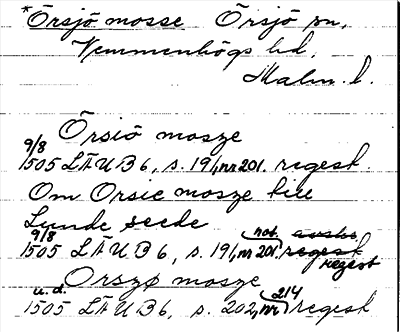 *Örsjö mosse Örsjö sn,
Vemmenhögs hd,
Malm. l.
Örsiö mosze
9/8
1505 LÄUB 6, s. 191, nr 201. regest.
Om Orsie mosze till
Lunde seede
not. avskr.
9/8
1505 LÄUB 6, s. 191, nr 201. regest
regest
Orszø mosze
u.d. 214
1505 LÄUB 6, s. 202, nr regest